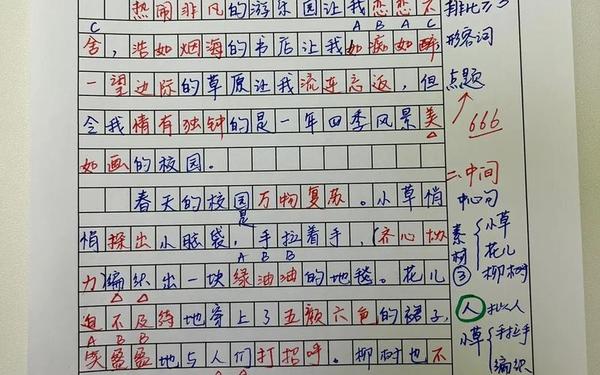 热闹非凡的游乐园让我恋恋不
C A B A C
舍，浩如烟海的书店让我如痴如醉，
一望边际的草原让我流连忘返，但
令我情有独钟的是一年四季风景美
如画的校园。
春天的校园万物复苏。小草悄
是
悄探出小脑袋，手拉着手，(齐心协
A B B
力)编织出一块绿油油的地毯。花儿
迫不及待地穿上了五颜六色的裙子，
A B B
笑盈盈地与人们打招呼。柳树也不
排比
形容词
点题
666
二、中间
中心句
素材③
小草
花儿
柳树
人 拟人
小草
手拉手
编织